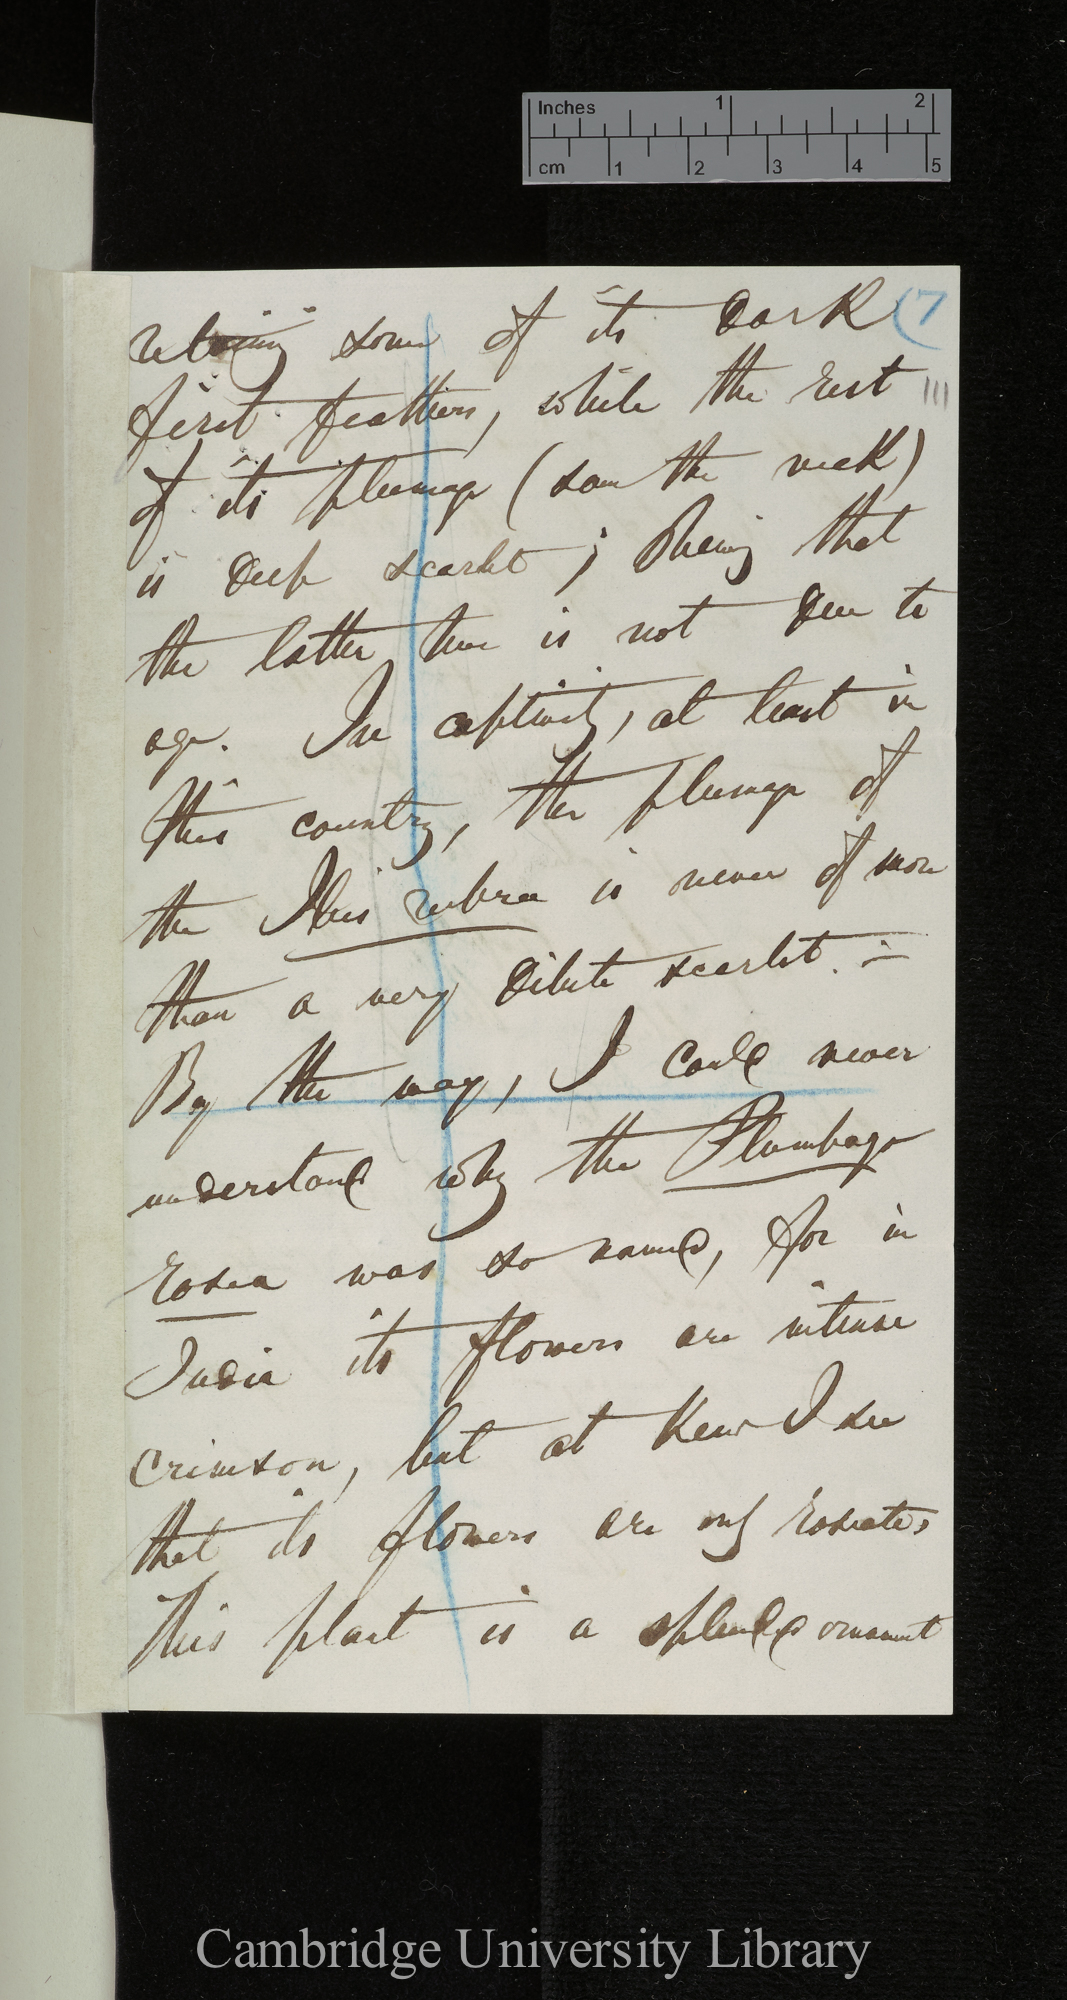 Inches 1 2
cm 1 2 3 4 5
retaining some of its dark (7
first feathers, while the rest
of its plumage (save the neck)
is deep scarlet; shewing that
the latter hue is not due to
age. In captivity, at least in
this country, the plumage of
the Ibis rubra is never of more
than a very dilute scarlet. —
By the way, I could never
understand why the Plumbago
rosea was so named, for in
India its flowers are intense
crimson, but at Kew I see
that its flowers are only roseate,
This plant is a splendid ornament
Cambridge University Library